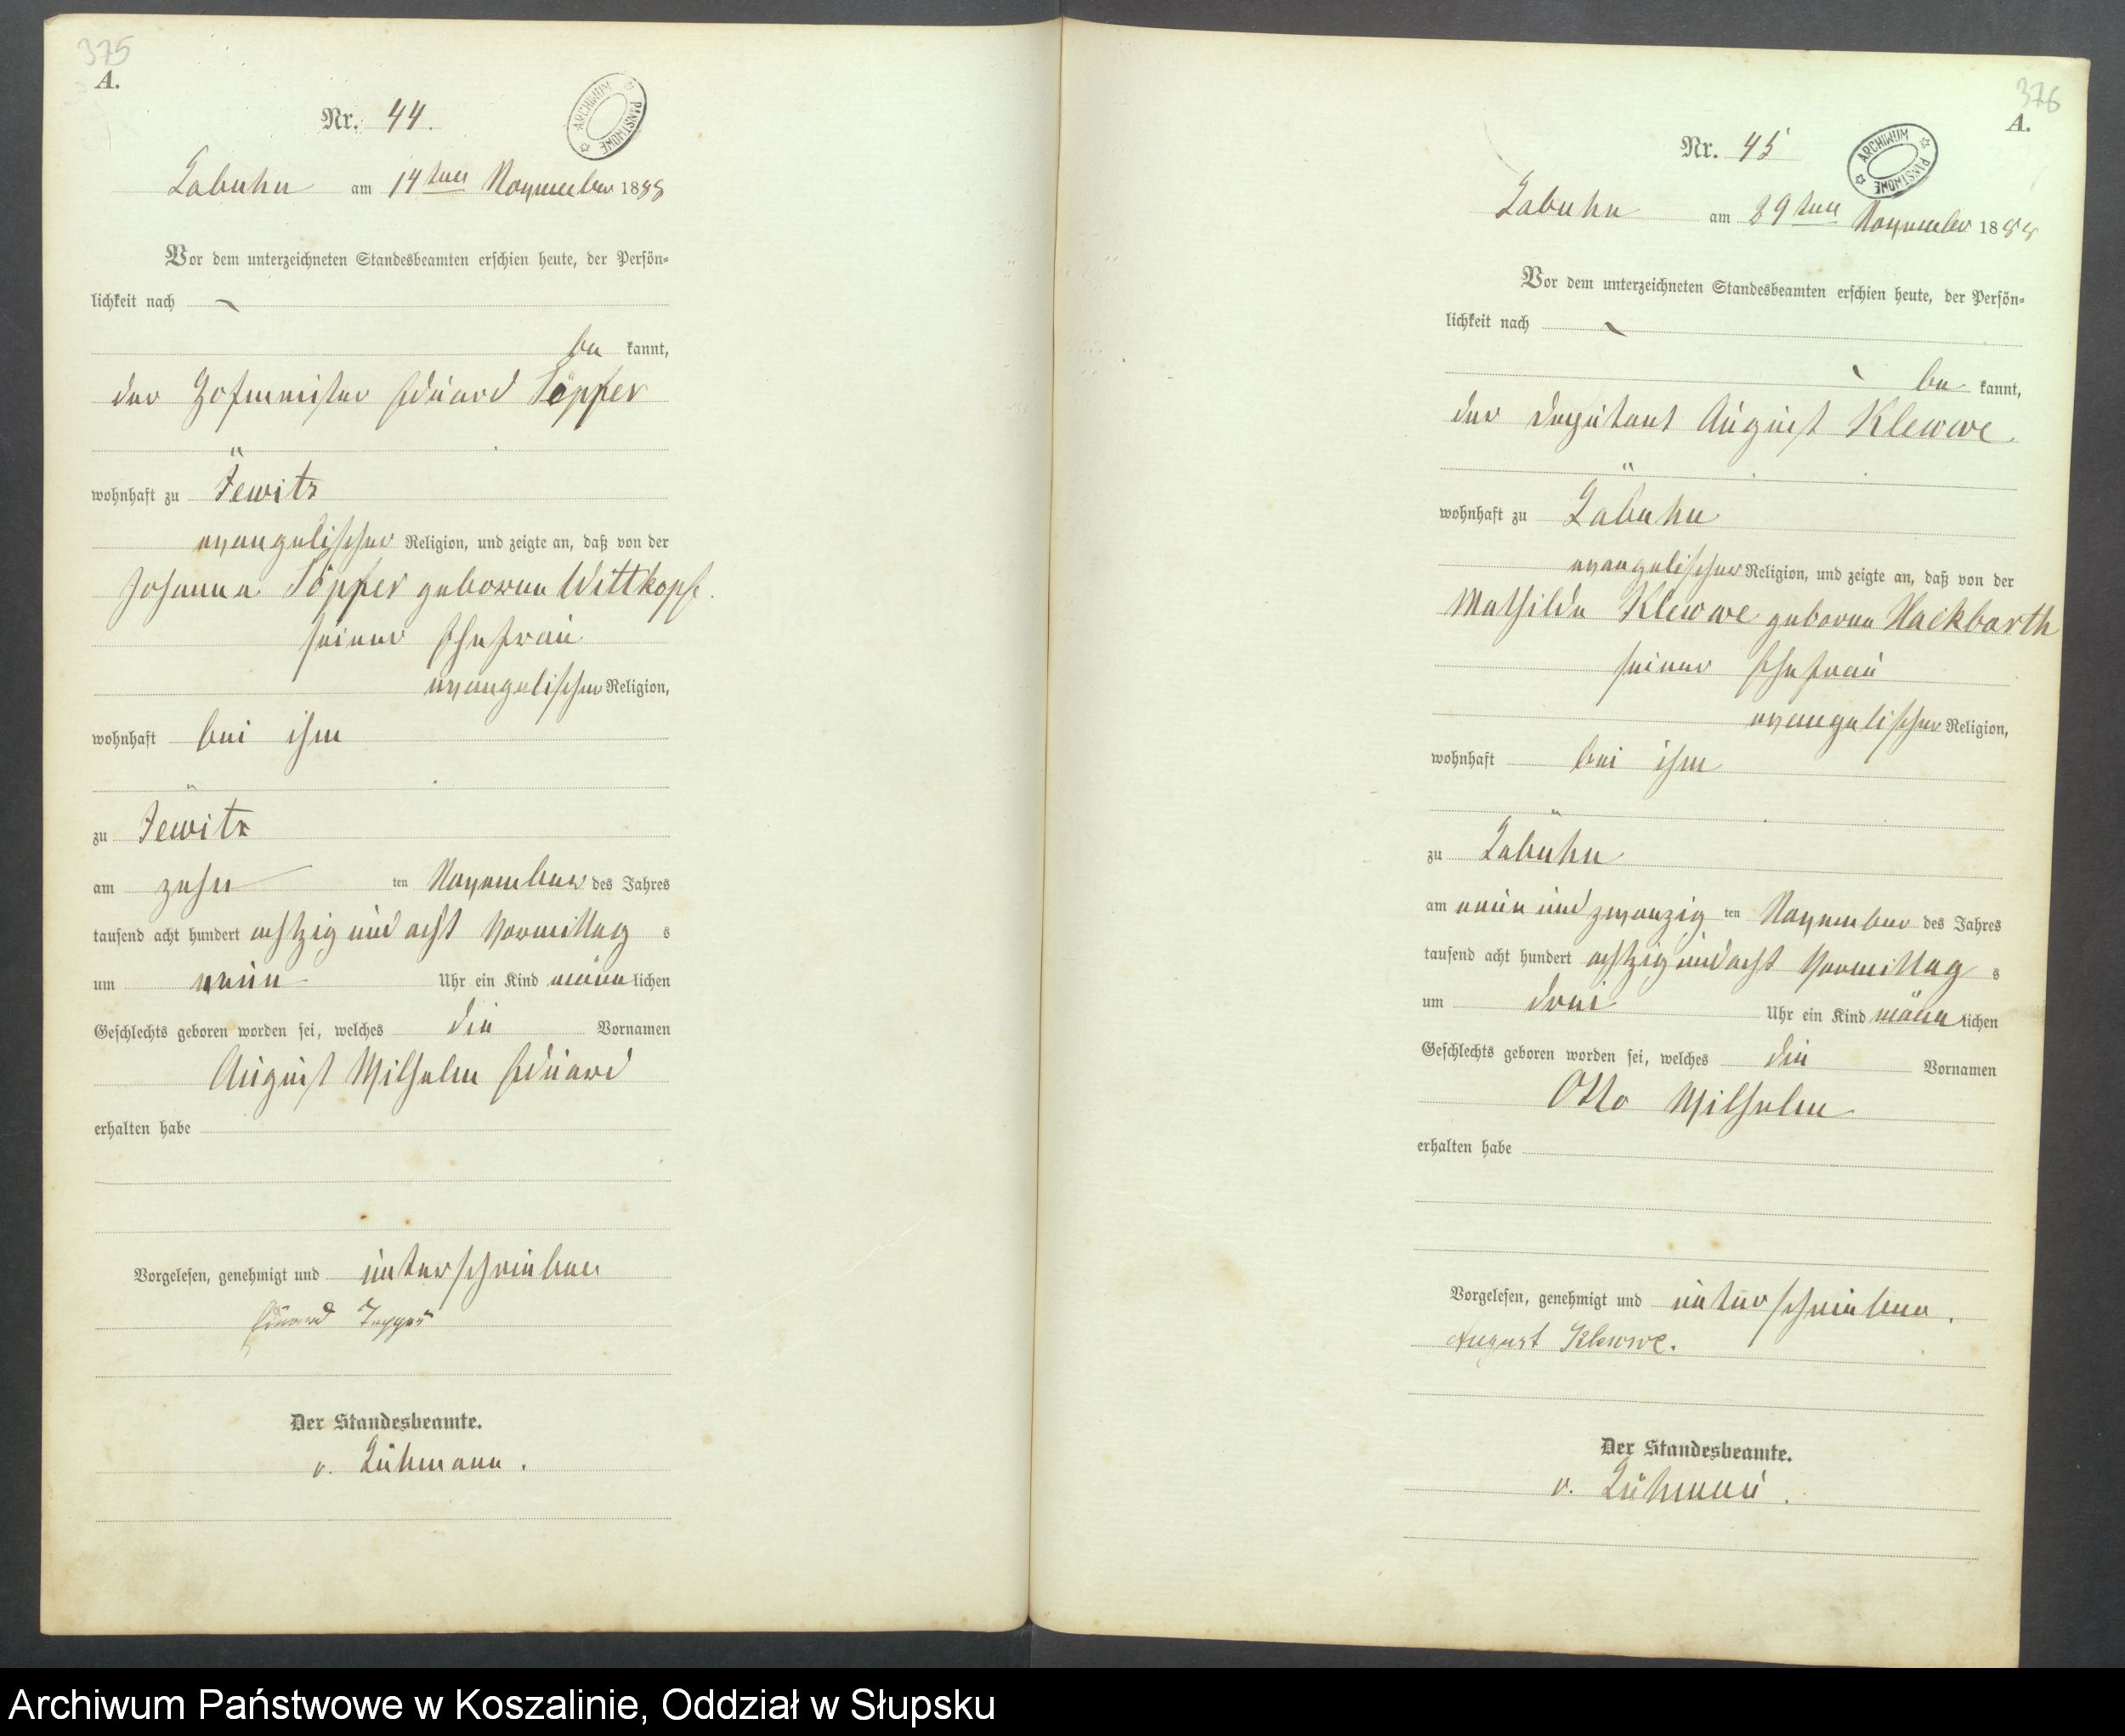 375
A.
Nr. 44.
ARCHIWUM PAŃSTWOWE
Labuhn am 14ten November 1888
Vor dem unterzeichneten Standesbeamten erschien heute, der Persön-
lichkeit nach
be kannt,
der Hofmeister Eduard Töpfer
wohnhaft zu Jewitz
evangelischer Religion, und zeigte an, daß von der
Johanna Töpfer geborne Wittkopf
seiner Ehefrau
evangelischer Religion,
wohnhaft bei ihm
zu Jewitz
am zehn ten November des Jahres
tausend acht hundert achtzig und acht Vormittag s
um neun Uhr ein Kind männlichen
Geschlechts geboren worden sei, welches die Vornamen
August Wilhelm Eduard
erhalten habe
Vorgelesen, genehmigt und unterschrieben
Eduard
Der Standesbeamte.
v. Lühmann.
376
A.
Nr. 45
ARCHIWUM PAŃSTWOWE
Labuhn am 29ten November 1888
Vor dem unterzeichneten Standesbeamten erschien heute, der Persön-
lichkeit nach
be kannt,
der Deputant August Klewwe
wohnhaft zu Labuhn
evangelischer Religion, und zeigte an, daß von der
Mathilde Klewwe geborne Hackbarth
seiner Ehefrau
evangelischer Religion,
wohnhaft bei ihm
zu Labuhn
am neun und zwanzig ten November des Jahres
tausend acht hundert achtzig und acht Vormittag s
um drei Uhr ein Kind männlichen
Geschlechts geboren worden sei, welches die Vornamen
Otto Wilhelm
erhalten habe
Vorgelesen, genehmigt und unterschrieben.
August Klewwe.
Der Standesbeamte.
v. Lühmann.
Archiwum Państwowe w Koszalinie, Oddział w Słupsku